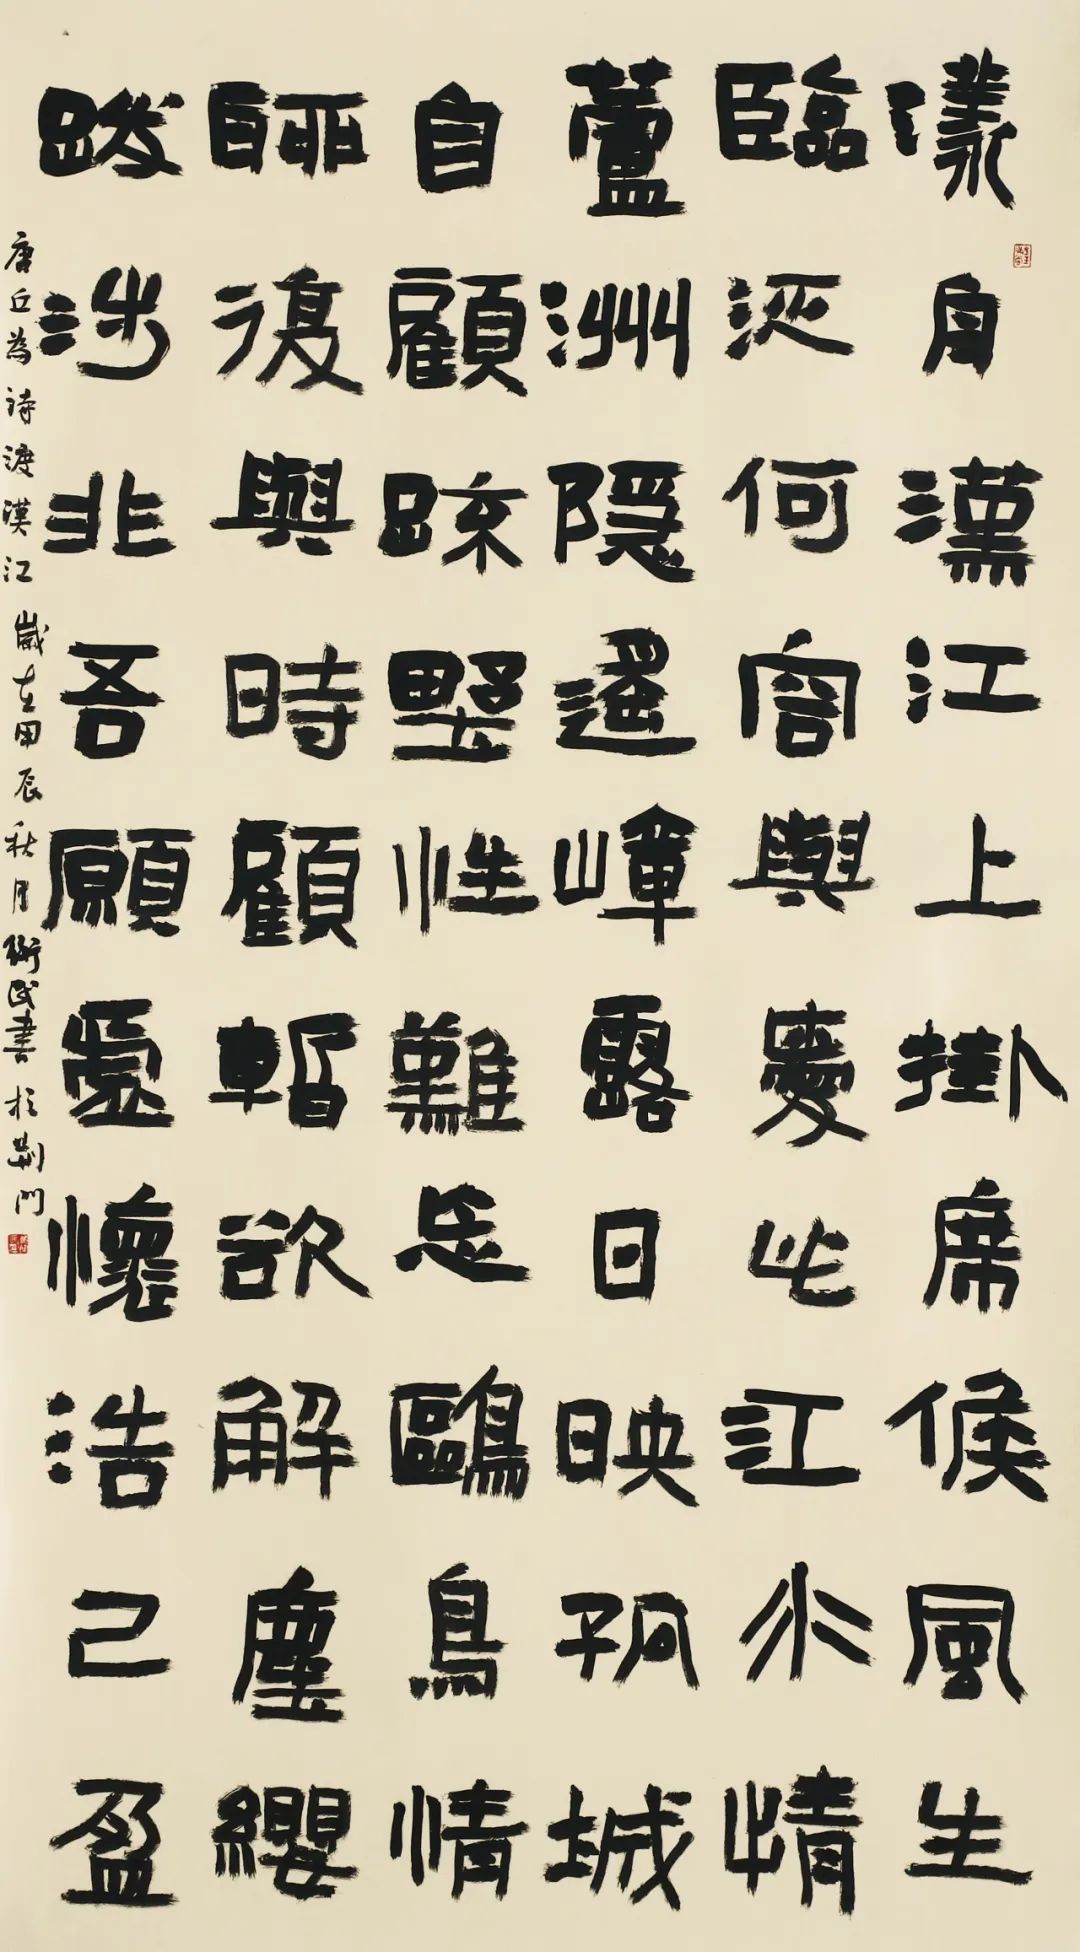 漾舟漢江上掛席候風生
臨泛何容與愛此江水情
蘆洲隱遙嶂露日映孤城
自顧踈野性難忘鷗鳥情
聊復與時顧暫欲解塵纓
跋涉非吾願虛懷浩已盈
唐丘為詩渡漢江 歲在甲辰秋月衛民書於荊門